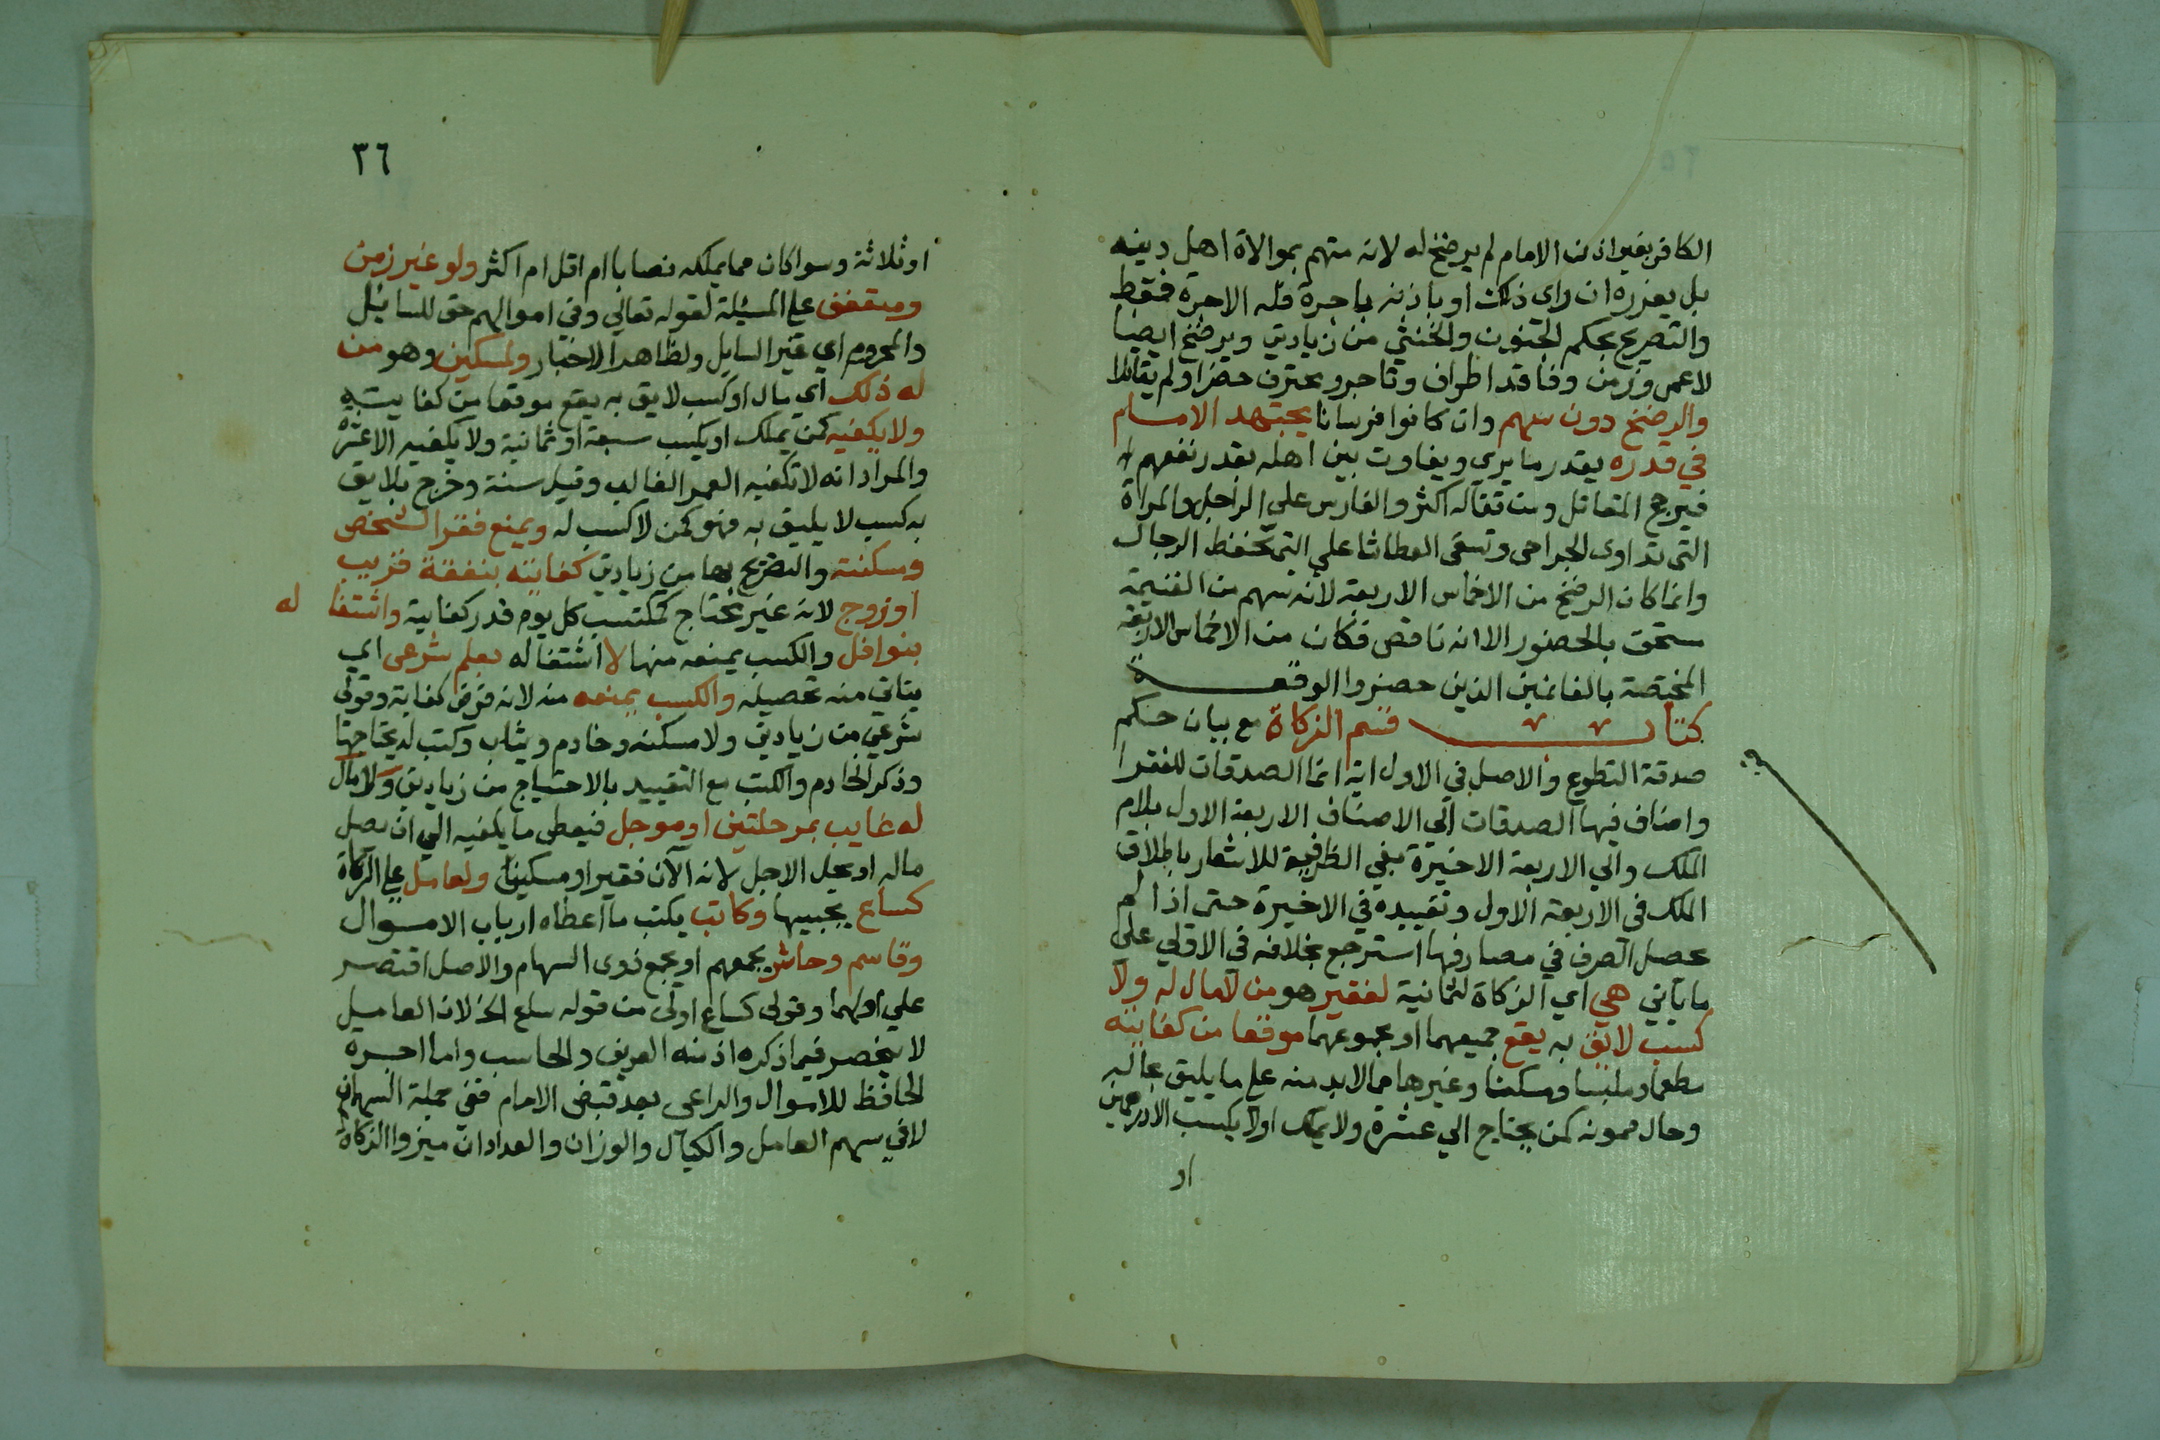 الكافر بغير اذن الامام لم يرضخ له لانه متهم بموالاة اهل دينه
بل يعزره ان راي ذلك او باذنه باجرة فله الاجرة فقط
والتصريح بحكم المجنون والخنثي من زيادتي ويرضخ ايضا
لاعمى وزمن وفاقد اطراف وتاجر ومحترف حضرا ولم يقاتلا
والرضخ دون سهم وان كانوا فرسانا يجتهد الامام
في قدره بقدر ما يري ويفاوت بين اهله بقدر نفعهم
فيرجح المقاتل ومن قتاله اكثر والفارس علي الراجل والمراة
التي تداوى الجراحى وتسقى العطاشا علي التي تحفظ الرحال
وانما كان الرضخ من الاخماس الاربعة لانه سهم من الغنيمة
مستحق بالحضور الا انه ناقص فكان من الاخماس الاربعة
المختصة بالغانمين الذين حضروا الوقعة
كتاب قسم الزكاة مع بيان حكم
صدقة التطوع والاصل في الاول اية انما الصدقات للفقرا
واضاف فيها الصدقات الى الاصناف الاربعة الاول بلام
الملك والي الاربعة الاخيرة بفي الظرفية للاشعار باطلاق
الملك في الاربعة الاول وتقييده في الاخيرة حتى اذا لم
يحصل الصرف في مصارفها استرجع بخلافه في الاولي على
ما ياتي هي اي الزكاة لثمانية لفقير هو من لا مال له ولا
كسب لايق به يقع جميعهما او مجموعهما موقعا من كفايته
مطعما وملبسا ومسكنا وغيرها مما لابد منه علي ما يليق بحاله
وحال ممونه كمن يحتاج الي عشرة ولا يملك او لا يكسب الا درهمين
او
٣٦
او ثلاثة وسوا كان مما يملكه نصابا ام اقل ام اكثر ولو غير زمن
ومتعفف علي المسئلة لقوله تعالي وفي اموالهم حق للسايل
والمحروم اي غير السايل ولظاهر الاخبار ولمسكين وهو من
له ذلك اي مال او كسب لايق به يقع موقعا من كفايته
ولا يكفيه كمن يملك او يكسب سبعة او ثمانية ولا يكفيه الا عشرة
والمراد انه لا تكفيه العمر الغالب وقيل سنة وخرج بلايق
به كسب لا يليق به فهو كمن لا كسب له ويمنع فقر الشخص
ومسكنته والتصريح بها من زيادتي كفايته بنفقة قريب
او زوج لانه غير محتاج كمكتسب كل يوم قدر كفاية واشتغا له
بنوافل والكسب يمنعه منها لا اشتغاله بعلم شرعى اي
يتاتي منه تحصيله والكسب يمنعه منه لانه فرض كفاية وقولي
شرعي من زيادتي ولا مسكنه وخادم وثياب وكتب له يحتاجها
وذكر الخادم والكتب مع التقييد بالاحتياج من زيادتي ولا مال
له غايب بمرحلتين او موجل فيعطى ما يكفيه الي ان يصل
ماله او يحل الاجل لانه الآن فقير او مسكين ولعامل علي الزكاة
كساع يجبيها وكاتب يكتب ما اعطاه ارباب الاموال
وقاسم وحاشر يجمعهم او يجمع ذوى السهام والاصل اقتصر
علي اولهما وقولى كساع اولى من قوله ساع الخ لان العامل
لا ينحصر فيما ذكره اذ منه العريف والحاسب واما اجرة
الحافظ للاموال والراعى بعد قبض الامام ففي جملة السهمان
لا في سهم العامل والكيال والوزان والعداد ان ميزوا الزكاة